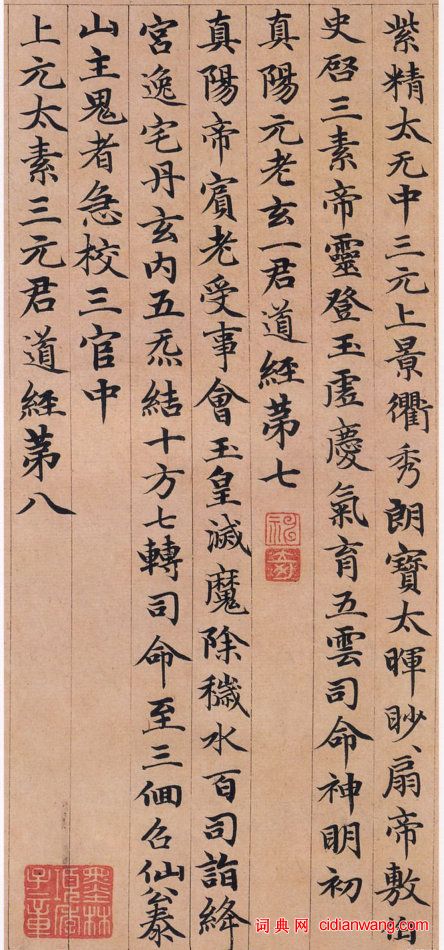 紫精太无中三元上景衢秀朗寶太暉眇扇帝敷治
史啓三素帝靈登玉虛慶氣育五雲司命神明初
真陽元老玄一君道經第七
真陽帝賓老受事會玉皇滅魔除穢水百司詣絳
宮逸宅丹玄內五炁結十方七轉司命至三佪名仙公泰
山主鬼者急校三官中
上元太素三元君道經第八
墨林
子章
词典网 cidianwang.com